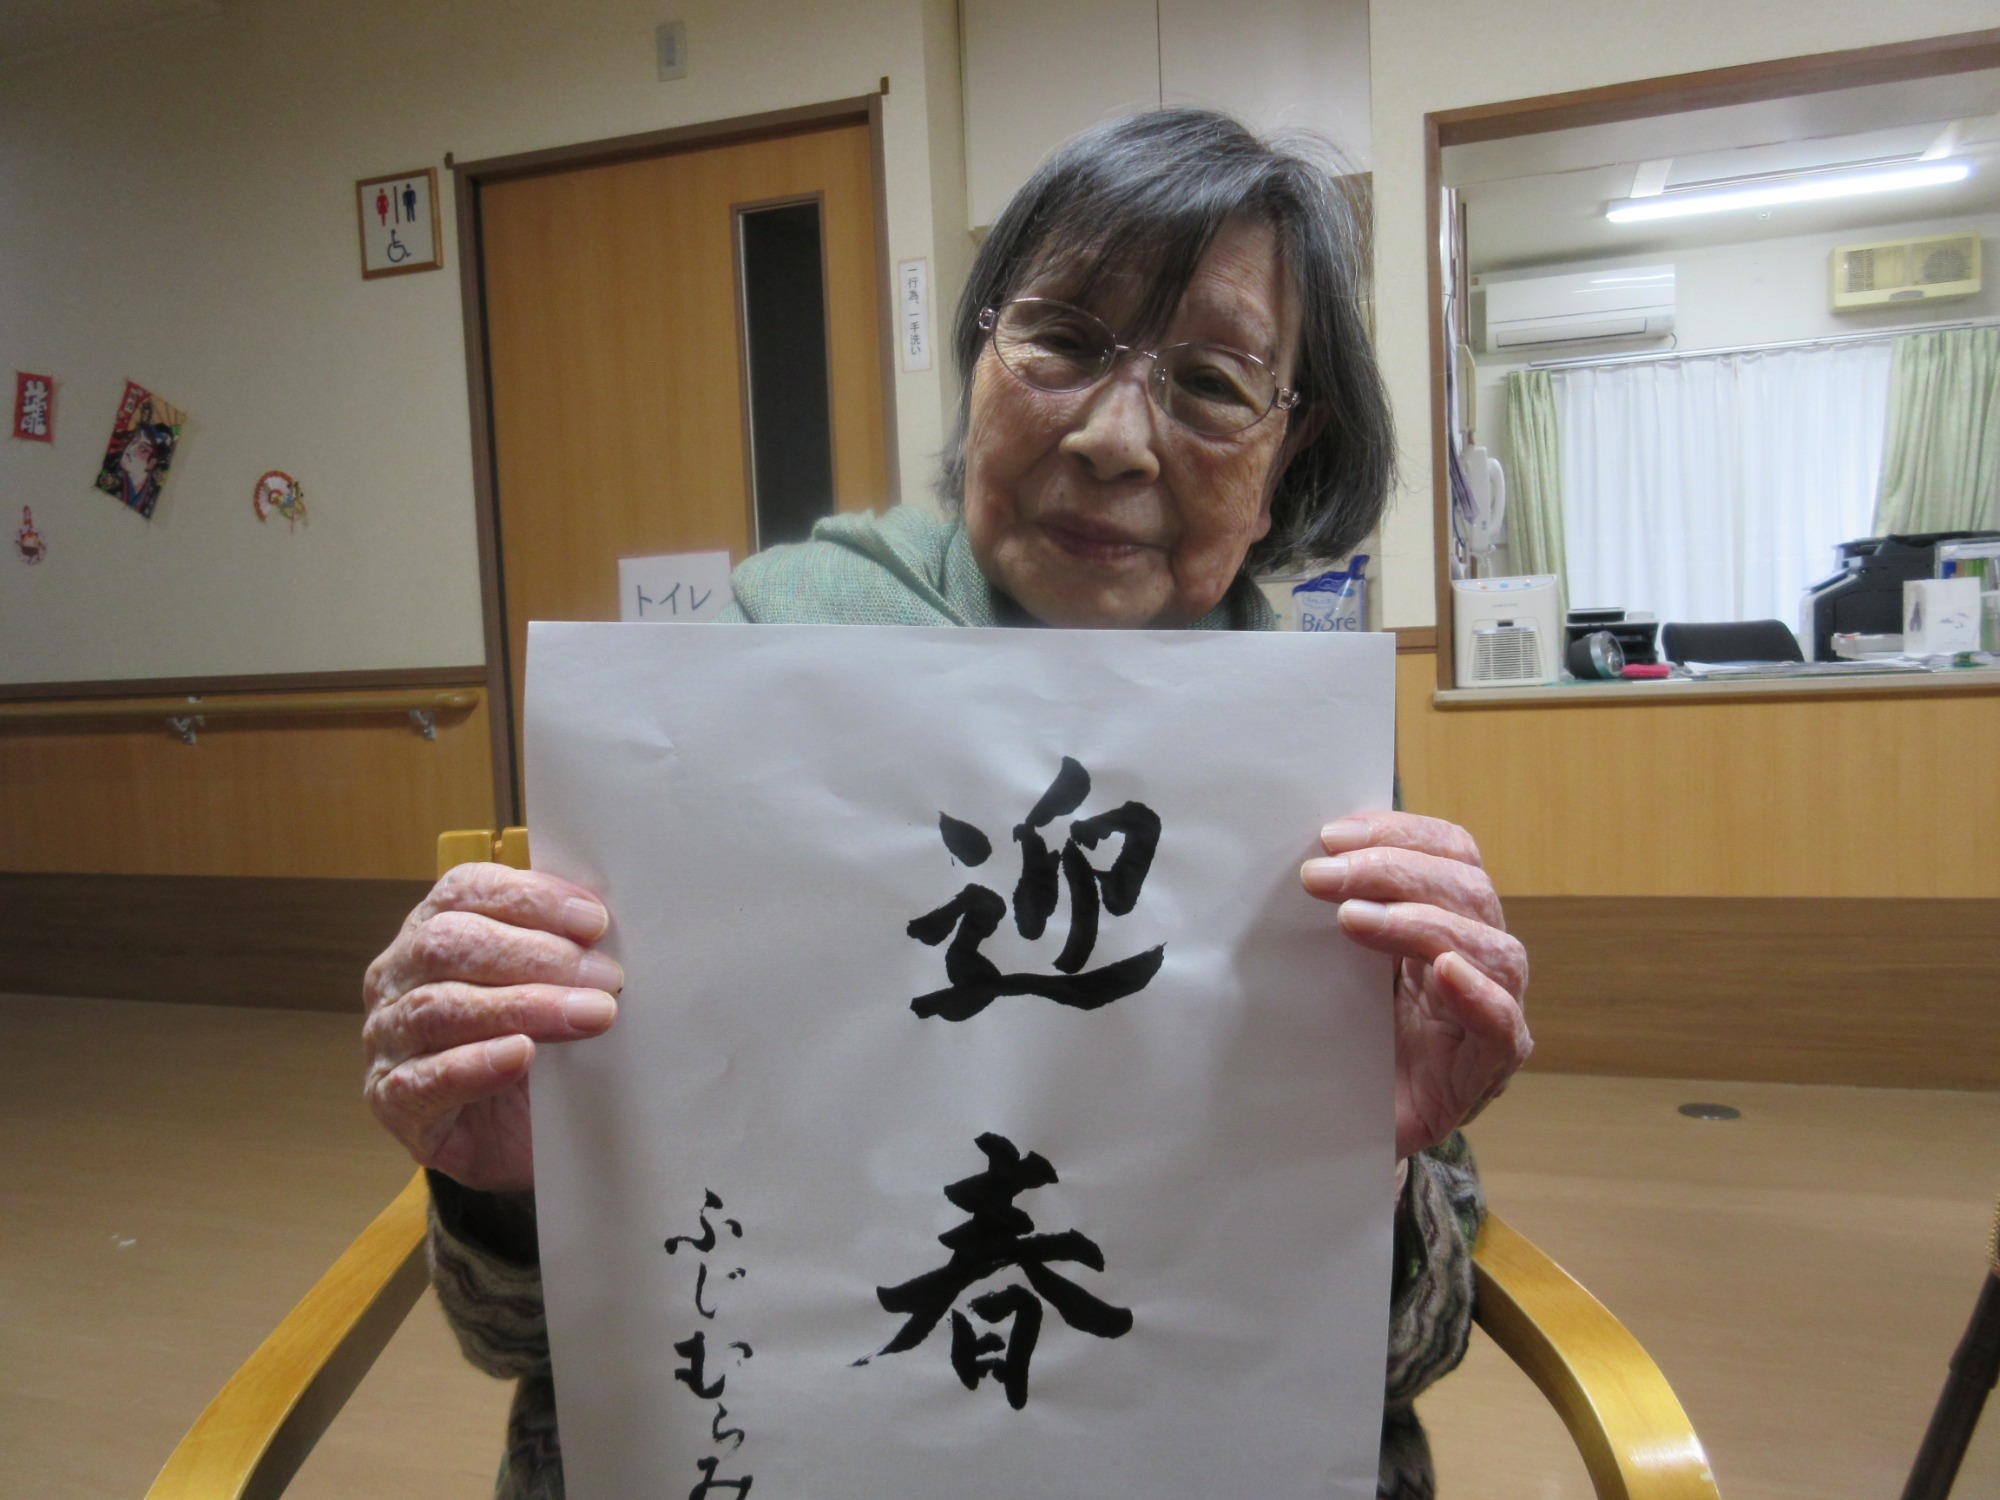 迎春
ふじむらみ
トイレ
一行為、一手洗い
Bioré